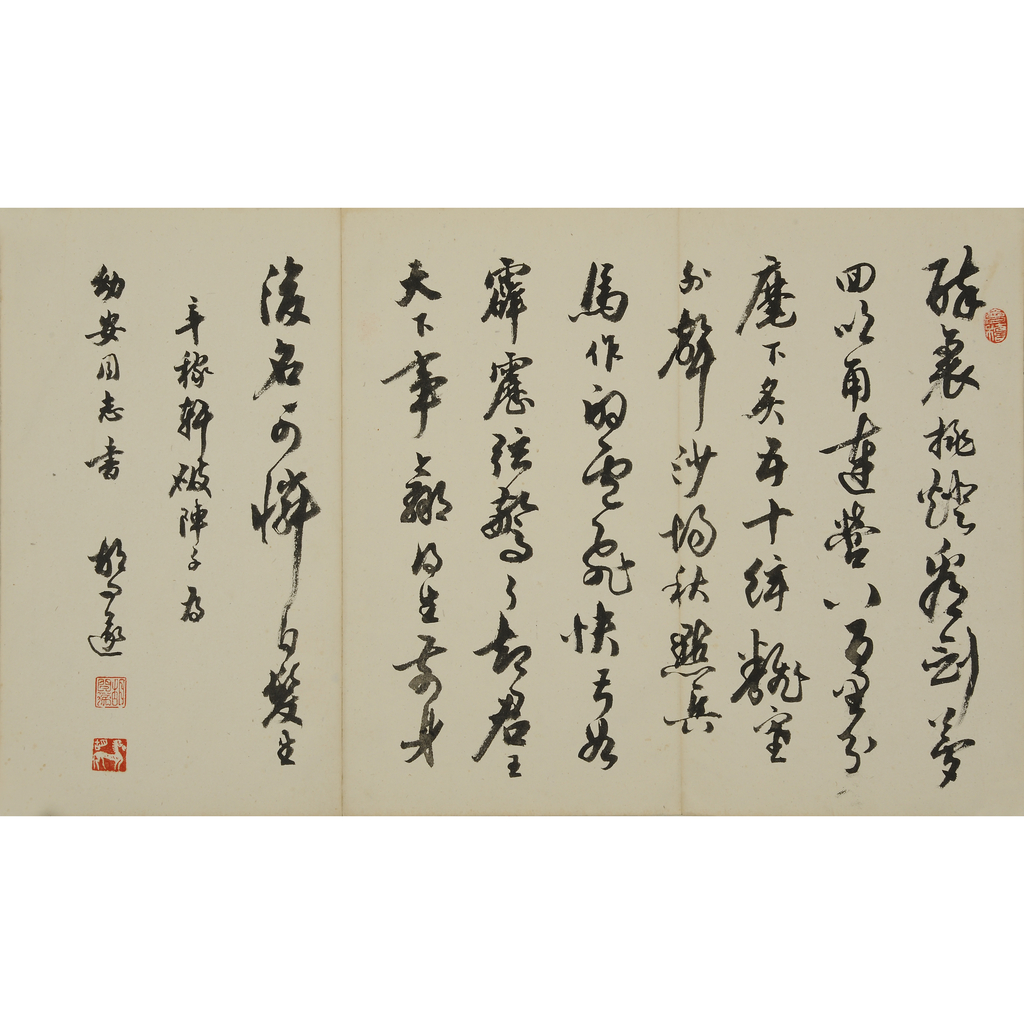 醉裏挑燈看劍夢
回吹角連營八百里分
麾下炙五十絃翻塞
外聲沙場秋點兵
馬作的盧飛快弓如
霹靂弦驚了却君王
天下事贏得生前身
後名可憐白髮生
辛稼軒破陣子為
幼安同志書 胡問遂